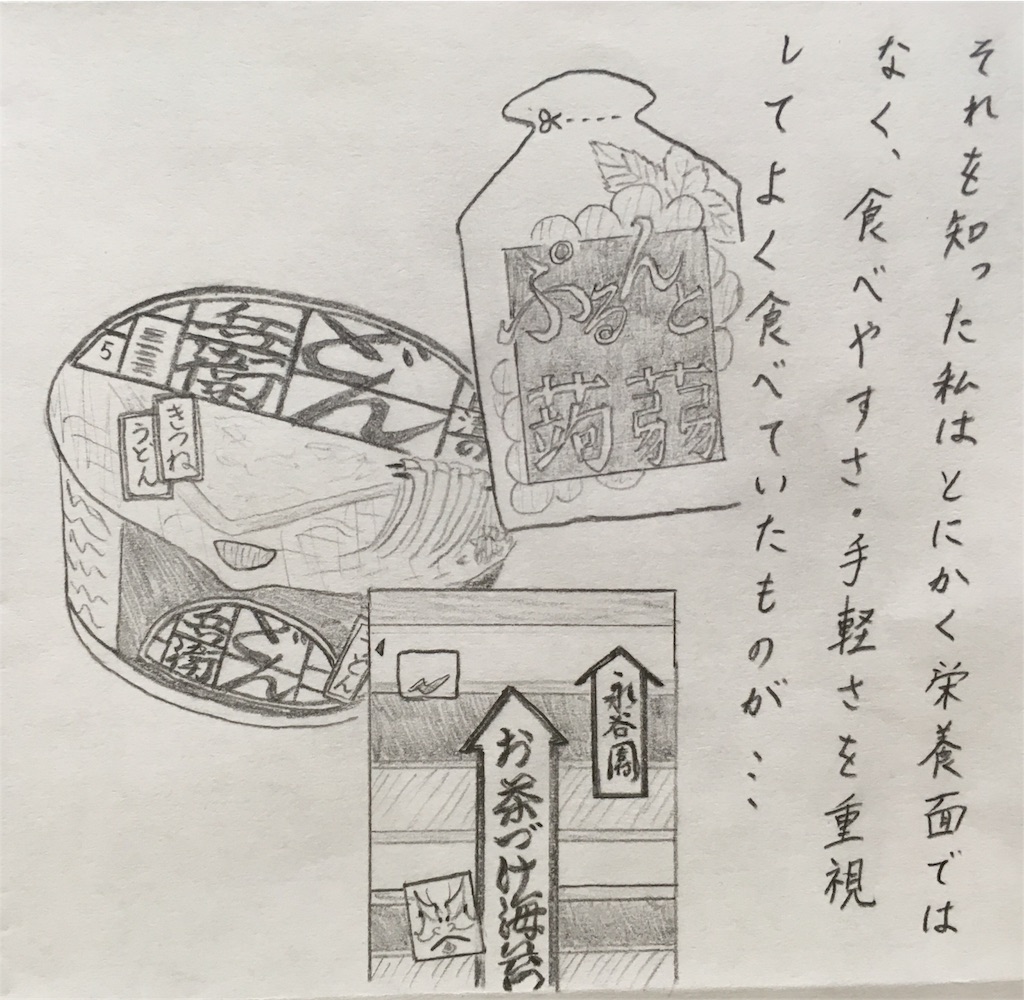 それを知った私はとにかく栄養面では
なく、食べやすさ・手軽さを重視
してよく食べていたものが…
ぷるんと
蒟蒻
どん
兵衛
5
きつね
うどん
どん
兵衛
うどん
永谷園
お茶づけ海苔